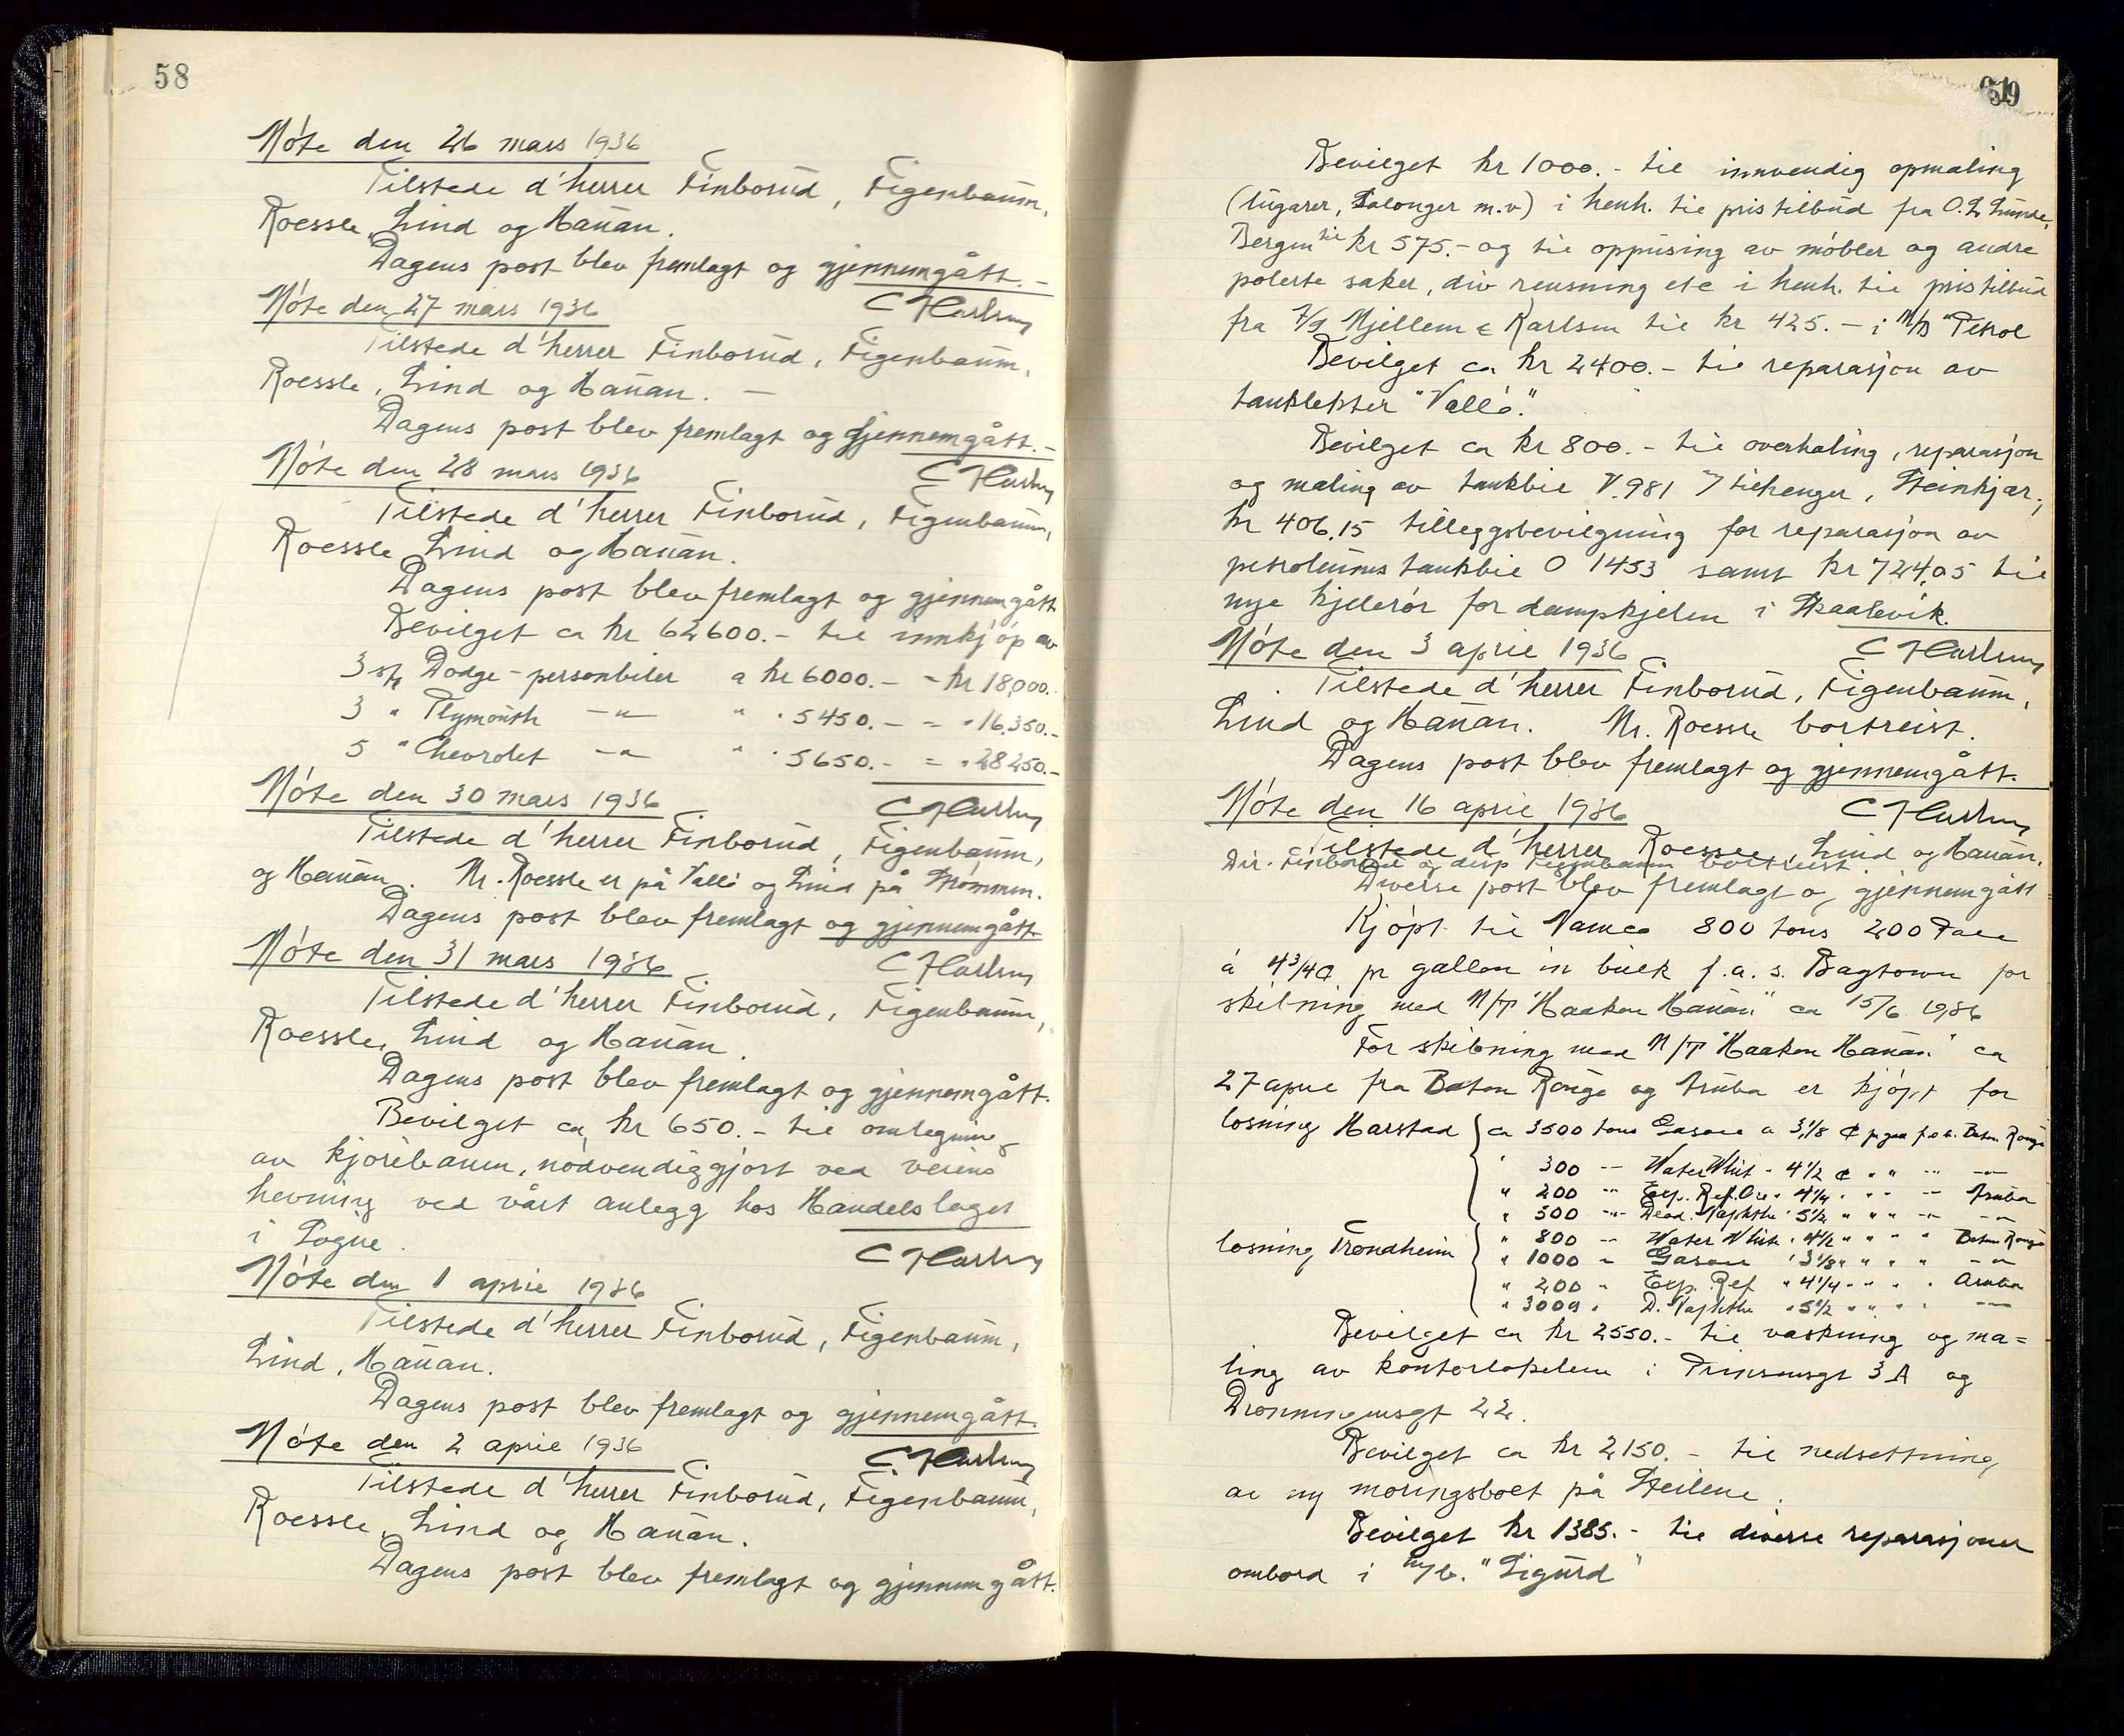 58
Møte den 26 mars 1936
Tilstede d'herrer Finborud, Figenbaum,
Roessle, Lind og Hauan.
Dagens post blev fremlagt og gjennemgått. -
Møte den 27 mars 1936
Tilstede d'herrer Finborud, Figenbaum,
Roessle, Lind og Hauan. -
Dagens post blev fremlagt og gjennemgått. -
Møte den 28 mars 1936
Tilstede d'herrer Finborud, Figenbaum,
Roessle Lind og Hauan.
Dagens post blev fremlagt og gjennemgått
Bevilget ca kr 62600.- til innkjøp av
3 stk Dodge - personbiler a kr 6000.- = kr 18,000.-
3 " Plymouth -"- " " 5450.- = " 16,350.-
5 " Chevrolet -"- " " 5650.- = " 28250.-
Møte den 30 mars 1936
Tilstede d'herrer Finborud, Figenbaum,
og Hauan. Mr. Roessle er på Vallø og Lind på Strømmen.
Dagens post blev fremlagt og gjennemgått
Møte den 31 mars 1936
Tilstede d'herrer Finborud, Figenbaum,
Roessle, Lind og Hauan.
Dagens post blev fremlagt og gjennemgått.
Bevilget ca kr 650.- til omlegning
av kjørebanen, nødvendiggjort ved veiens
hevning ved vårt anlegg hos Handelslaget
i Søgne.
Møte den 1 april 1936
Tilstede d'herrer Finborud, Figenbaum,
Lind, Hauan.
Dagens post blev fremlagt og gjennemgått.
Møte den 2 april 1936
Tilstede d'herrer Finborud, Figenbaum,
Roessle, Lind og Hauan.
Dagens post blev fremlagt og gjennemgått.
59
Bevilget kr 1000.- til innvendig opmaling
(lugarer, Salonger m.v) i henh. til pristilbud fra O. L. Lunde,
Bergen til kr 575.- og til oppusing av møbler og andre
polerte saker, div rensning etc i henh. til pristilbud
fra Mjellem & Karlsen til kr 425.- i M/B "Petrol
Bevilget ca kr 2400.- til reparasjon av
tanklekter "Vallø."
Bevilget ca kr 800.- til overhaling, reparasjon
og maling av tankbil V.981 tilhenger, Steinkjær,
kr 406.15 tilleggsbevilgning for reparasjon av
petroleums tankbil O 1453 samt kr 724,05 til
nye kjelerør for dampkjelen i Skaalevik.
Møte den 3 april 1936
Tilstede d'herrer Finborud, Figenbaum,
Lind og Hauan. Mr. Roessle bortreist.
Dagens post blev fremlagt og gjennemgått.
Møte den 16 april 1936
Tilstede d'herrer Roessle, Lind og Hauan.
Dir. Finborud og disp Figenbaum bortreist.
Diverse post blev fremlagt og gjennemgått
Kjøpt til 800 tons 200 Pale
á 4 3/4 ¢ pr gallon in bulk f.a.s. Bagtown for
skibning med M/T "Haakon Hauan" ca 15/6 1936
For skibning med M/T "Haakon Hauan" ca
27 april fra Baton Rouge og Aruba er kjøpt for
losning Harstad ca 3500 tons Gasoil a 3 1/8 ¢ pr gall f.o.b. Baton Rouge
" 300 -"- Water Whit " 4 1/2 ¢ " " -"- -"-
" 200 -"- Exp. Ref. Oil " 4 1/4 " " " -"- Aruba
" 300 -"- Deod. Naphtha " 5 1/2 " " " -"- -"-
losning Trondheim " 800 -"- Water Whit " 4 1/2 " " " " Baton Rouge
" 1000 " Gasoil " 3 1/8 " " " " -"-
" 200 " Exp. Ref " 4 1/4 " " " " Aruba
" 300 " D. Naphtha " 5 1/2 " " " " -"-
Bevilget ca kr 2550.- til vaskning og ma=
ling av kontorlokalene i Prinsensgt 3A og
Dronningensgt 22.
Bevilget ca kr 2150.- til nedsettning
av ny moringsbolt på Steilene.
Bevilget kr 1385.- til diverse reparasjoner
ombord i m/b. "Sigurd"